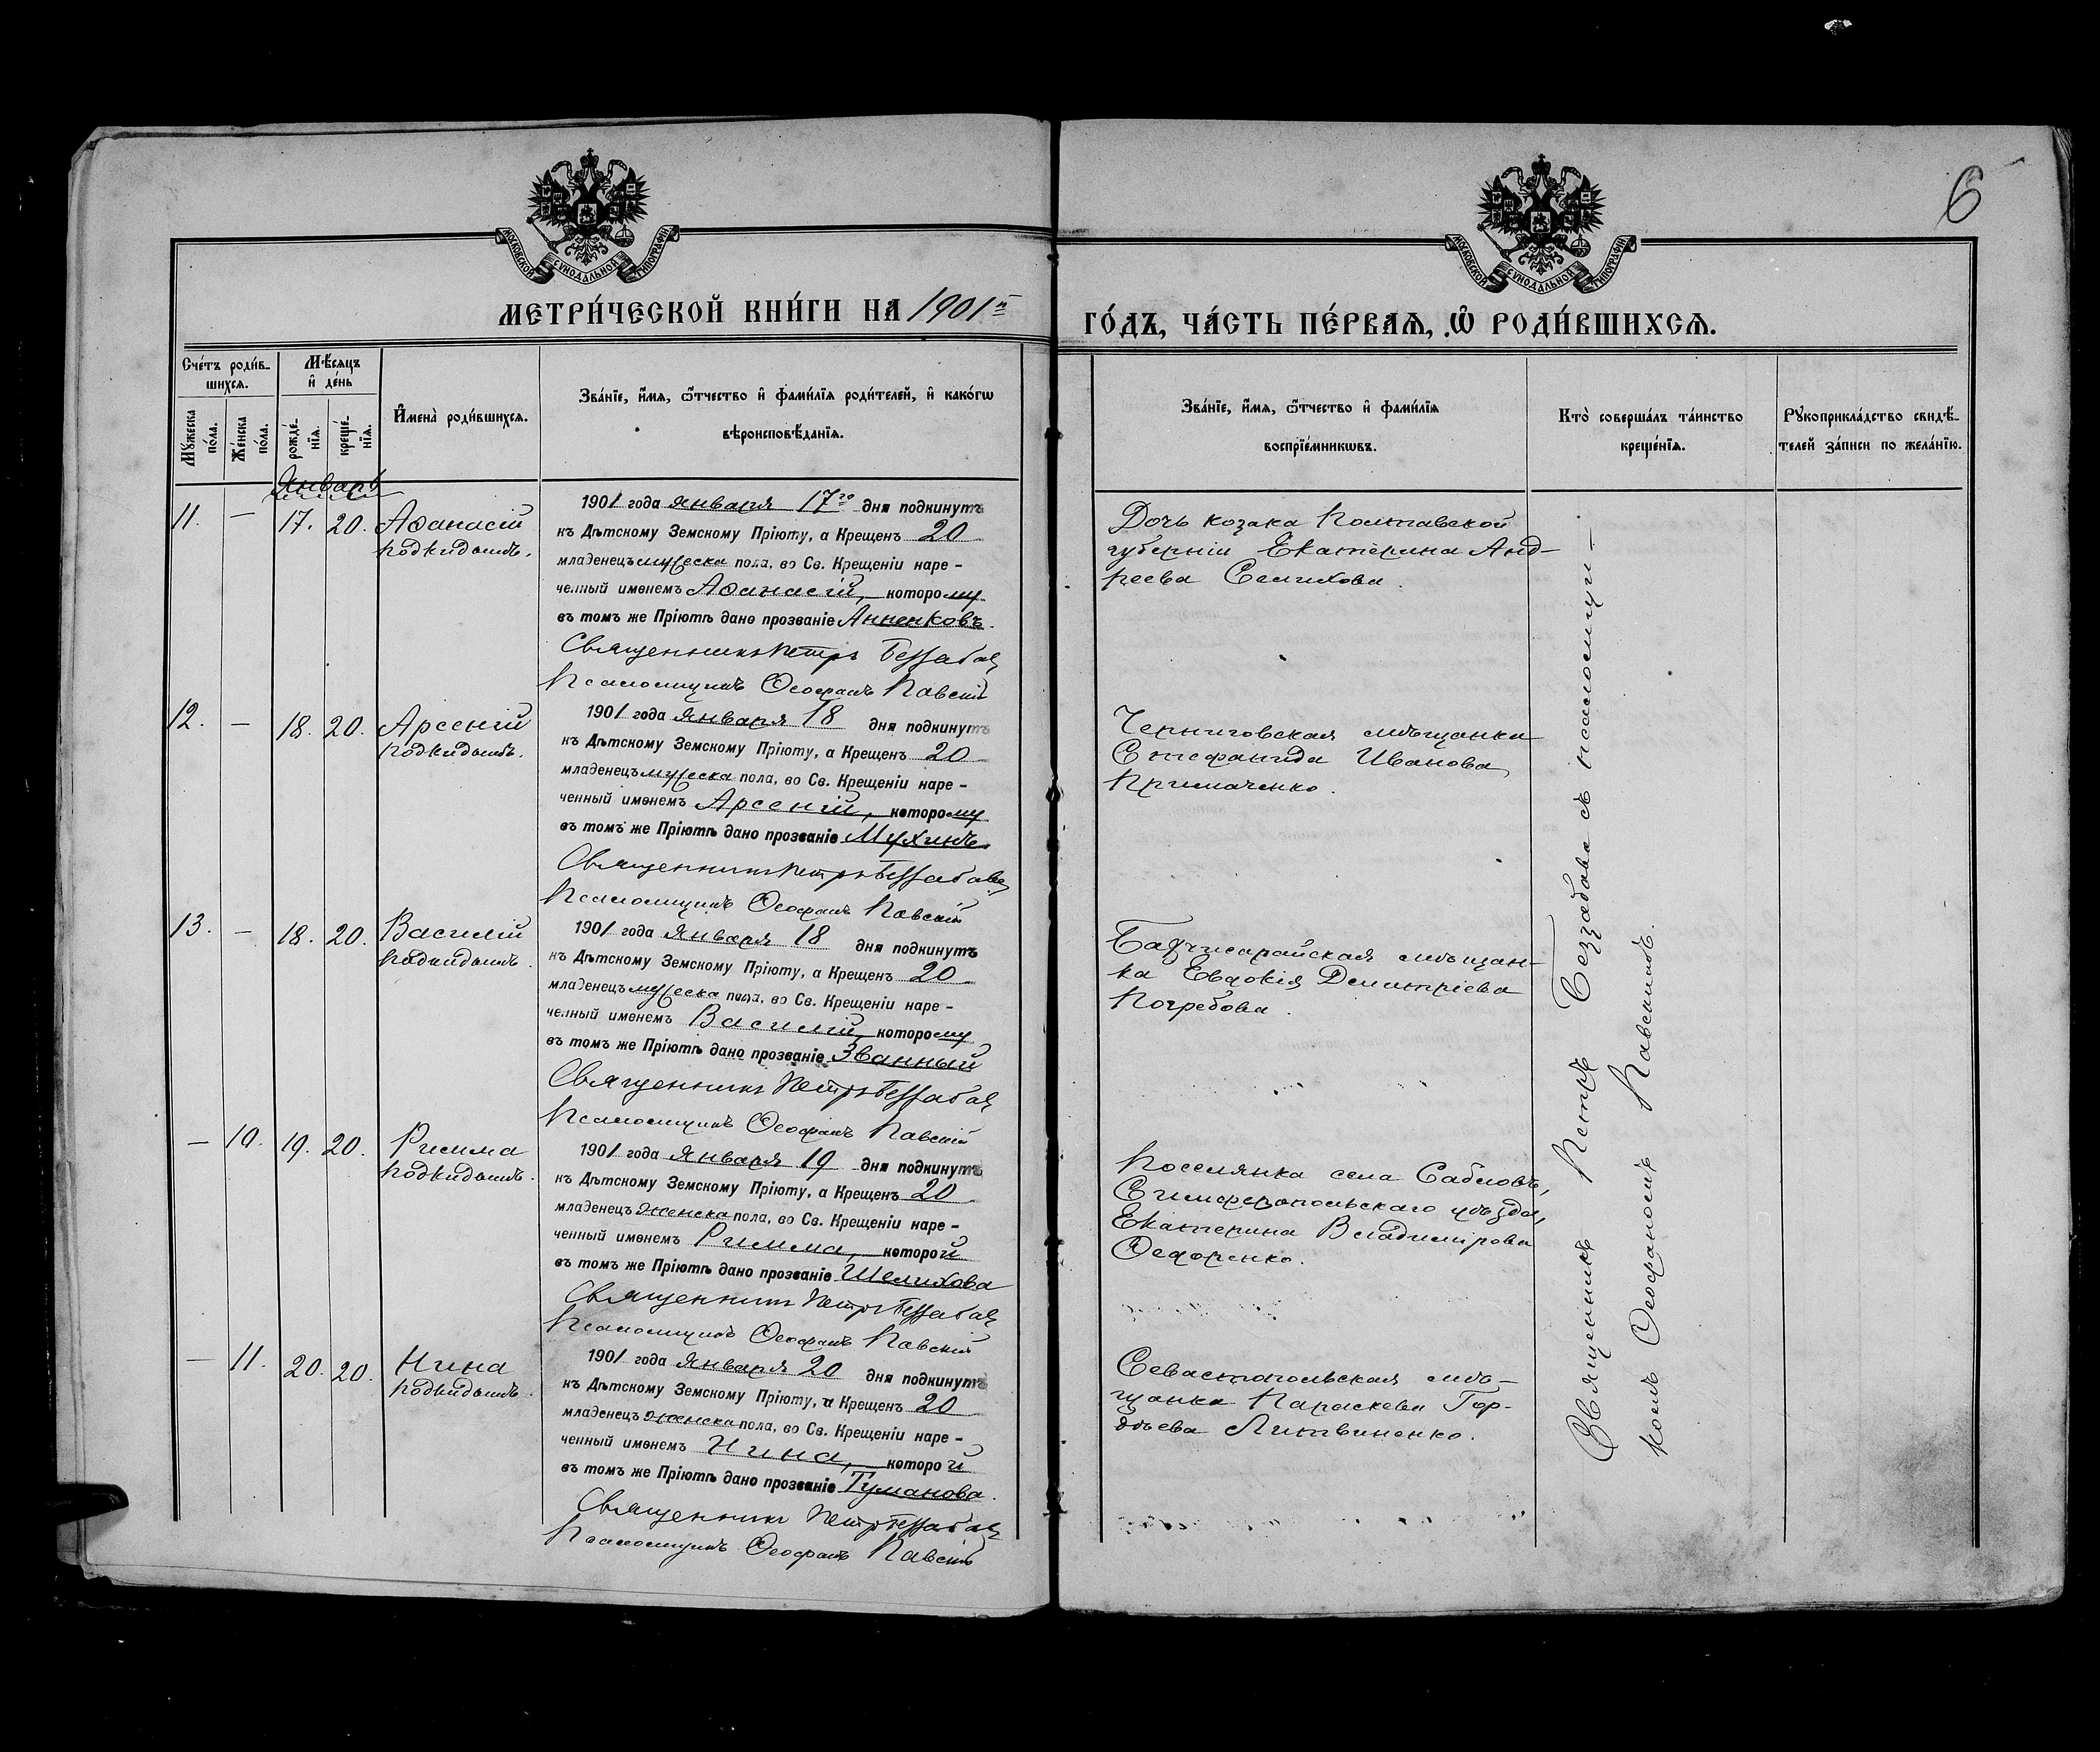 6
МОСКОВСКОЙ СѴНОДАЛЬНОЙ ТИПОГРАФІИ
МОСКОВСКОЙ СѴНОДАЛЬНОЙ ТИПОГРАФІИ
МЕТРИ́ЧЕСКОЙ КНИ́ГИ НА 1901й
ГО́ДЪ, ЧА́СТЬ ПЕ́РВАѦ, Ѽ РОДИ́ВШИХСѦ.
Сче́тъ роди́в-
шихсѧ.
Мꙋжеска по́ла.
Же́нска по́ла.
Мѣ́сѧцъ
и҆ де́нь
рожде́-
нїѧ.
креще́-
нїѧ.
И҆мена̀ роди́вшихсѧ.
Зва́нїе, и҆́мѧ, ѻ҆́тчество и҆ фами́лїѧ роди́телей, и҆ како́гѡ
вѣроисповѣ́данїѧ.
Зва́нїе, и҆́мѧ, ѻ҆́тчество и҆ фами́лїѧ
воспрїе́мникѡвъ.
Кто̀ соверша́лъ та́инство
креще́нїѧ.
Рꙋкоприкла́дство свидѣ́-
телей за́писи по жела́нїю.
Январь
11. — 17. 20. Аѳанасій
подкидышъ.
1901 года января 17го дня подкинутъ
къ Дѣтскому Земскому Пріюту, а Крещенъ 20
младенецъ мужеска пола, во Св. Крещеніи наре-
ченный именемъ Аѳанасій, которому
въ томъ же Пріютѣ дано прозваніе Анненковъ.
Священникъ Петръ Беззабав
Псаломщикъ Ѳеофанъ Павскій
Дочь козака Полтавской
губерніи Екатерина Анд-
реева Селихова.
12. — 18. 20. Арсеній
подкидышъ.
1901 года Января 18 дня подкинутъ
къ Дѣтскому Земскому Пріюту, а Крещенъ 20
младенецъ мужеска пола, во Св. Крещеніи наре-
ченный именемъ Арсеній, которому
въ томъ же Пріютѣ дано прозваніе Мухинъ.
Священникъ Петръ Беззабава
Псаломщикъ Ѳеофанъ Павскій
Черниговская мѣщанка
Стефанида Иванова
Примаченко.
13. — 18. 20. Василій
подкидышъ.
1901 года Января 18 дня подкинутъ
къ Дѣтскому Земскому Пріюту, а Крещенъ 20
младенецъ мужеска пола, во Св. Крещеніи наре-
ченный именемъ Василій, которому
въ томъ же Пріютѣ дано прозваніе Званный
Священникъ Петръ Беззабав
Псаломщикъ Ѳеофанъ Павскій
Бахчисарайская мѣщан-
ка Евдокія Димитріева
Погребова.
— 10. 19. 20. Римма
подкидышъ.
1901 года Января 19 дня подкинутъ
къ Дѣтскому Земскому Пріюту, а Крещенъ 20
младенецъ женска пола, во Св. Крещеніи наре-
ченный именемъ Римма, которой
въ томъ же Пріютѣ дано прозваніе Шелихова
Священникъ Петръ Беззабав
Псаломщикъ Ѳеофанъ Павскій
Поселянка села Сабловъ,
Симферопольскаго уѣзда,
Екатерина Владимірова
Ѳедоренко.
— 11. 20. 20. Нина
подкидышъ.
1901 года Января 20 дня подкинутъ
къ Дѣтскому Земскому Пріюту, а Крещенъ 20
младенецъ женска пола, во Св. Крещеніи наре-
ченный именемъ Нина, которой
въ томъ же Пріютѣ дано прозваніе Туманова.
Священникъ Петръ Беззабав
Псаломщикъ Ѳеофанъ Павскій
Севастопольская мѣ-
щанка Параскева Гор-
дѣева Литвиненко.
Священникъ Петръ Беззабава съ псаломщи-
комъ Ѳеофаномъ Павскимъ.